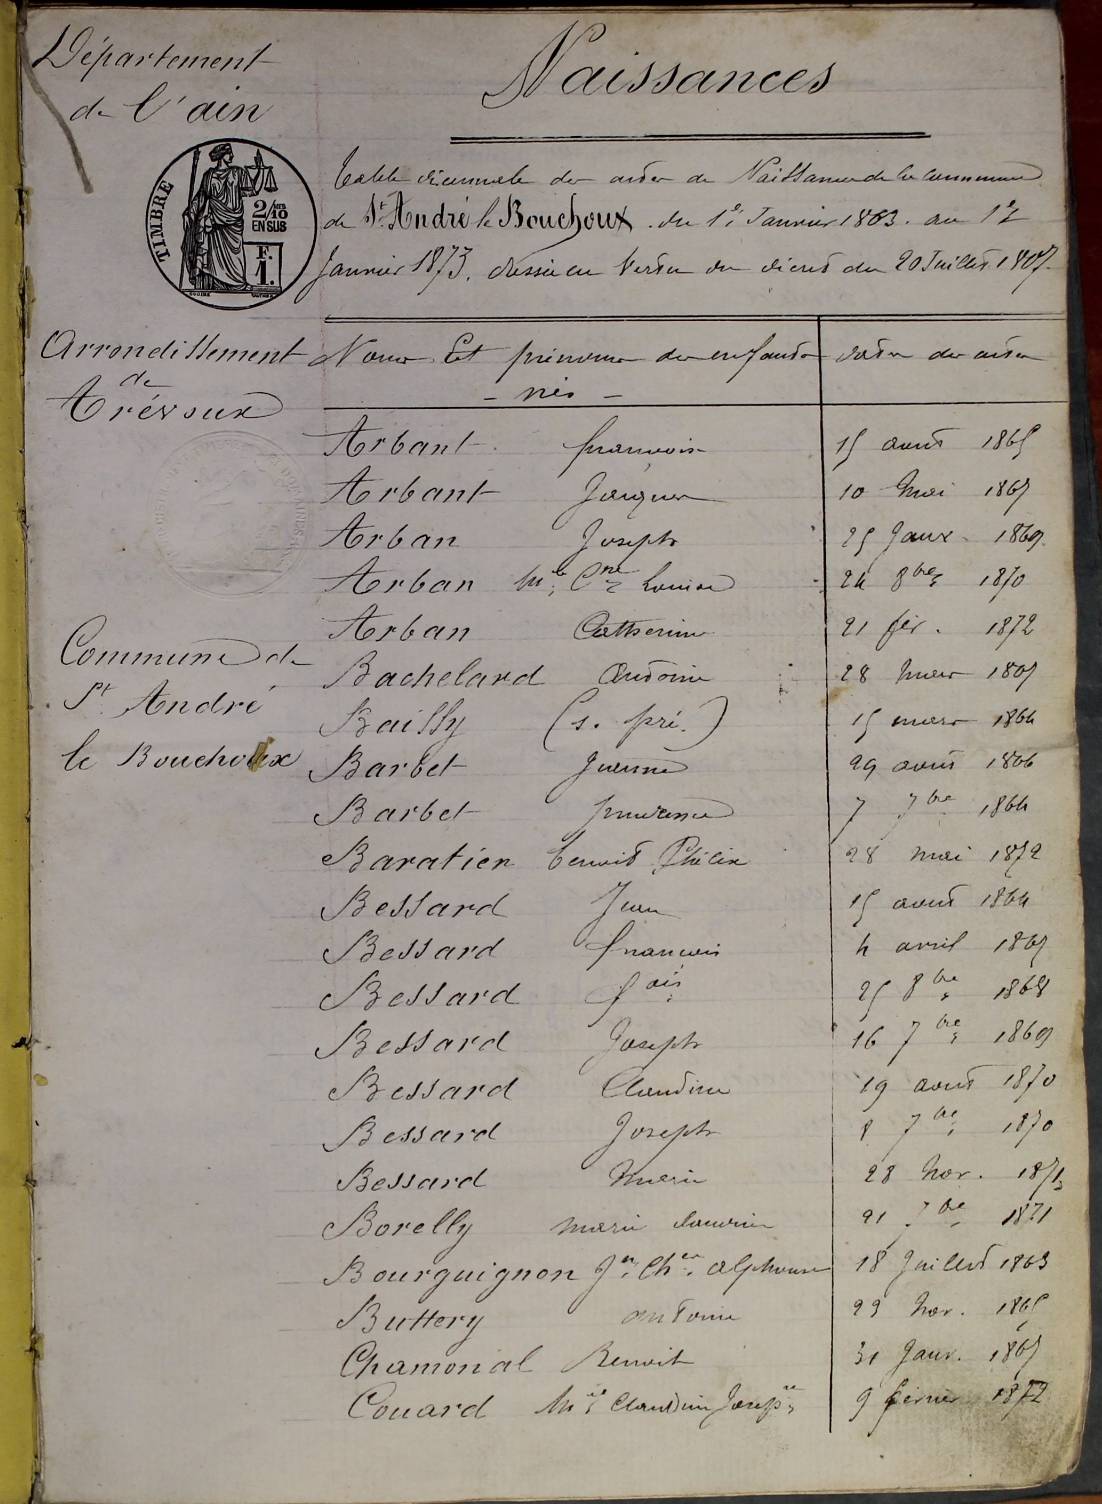 Département
de l'ain
Naissances
TIMBRE
2/10 EN SUS
F. 1.
Table décennale des actes de Naissance de la Commune
de St. André le Bouchoux. du 1er Janvier 1863. au 1er
Janvier 1873, dressée en Vertu du décret du 20 Juillet 1807.
Arrondissement
de
Trévoux
Noms Et prénoms des enfants
- nés -
dates des actes
Commune de
St. André
le Bouchoux
Arbant françois 15 aout 1865
Arbant Jacques 10 Mai 1867
Arban Joseph 25 Janv. 1869
Arban Mie Cne Louise 24 8bre 1870
Arban Catherine 21 fév. 1872
Bachelard Antoine 28 Mars
Bailly (s. pré.) 15 mars 1864
Barbet 29 aout 1866
Barbet 7 7bre 1864
Baratier benoit Phélix 28 mai 1872
Bessard Jean 15 aout 1864
Bessard françois 4 avril
Bessard fois 25 8bre 1868
Bessard Joseph 16 7bre 1869
Bessard Claudine 19 aout 1870
Bessard Joseph 8 7bre 1870
Bessard Marie 28 Nov. 1871
Borelly marie 21 7bre 1871
Bourguignon Jn Ches alphonse 18 Juillet 1863
Buttery antoine Nov. 1865
Chamonal Benoit 31 Janv.
Couard Mie Claudine Josepne 9 février 1872